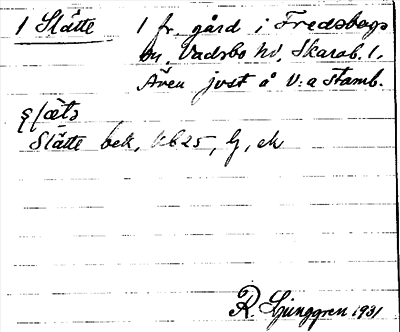 1 Slätte 1 fr. gård i Fredsbergs
sn, Vadsbo hd, Skarab. l.
Även just å V:a Stamb.
slæts
Slätte bek, kb 25, G, ek
R. Ljunggren 1931